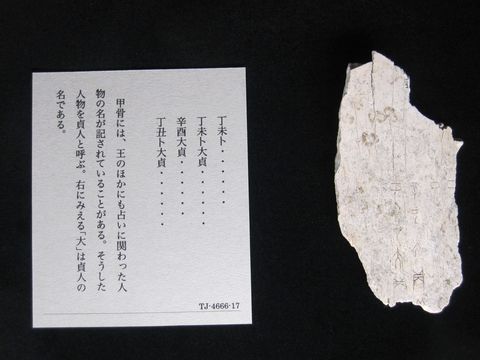 丁未卜・・・・・・
丁未卜大貞・・・・・・
辛酉大貞・・・・・・
丁丑卜大貞・・・・・・
甲骨には、王のほかにも占いに関わった人
物の名が記されていることがある。そうした
人物を貞人と呼ぶ。右にみえる「大」は貞人の
名である。
TJ-4666-17